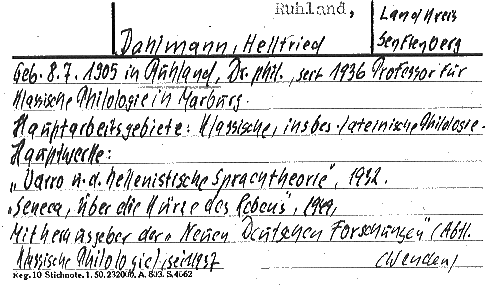 Ruhland, Landkreis
Dahlmann, Hellfried Senftenberg
Geb. 8.7.1905 in Ruhland, Dr. phil., seit 1936 Professor für
klassische Philologie in Marburg.
Hauptarbeitsgebiete: Klassische, insbes. lateinische Philologie.
Hauptwerke:
„Varro u. d. hellenistische Sprachtheorie", 1932.
„Seneca, Über die Kürze des Lebens",
Mitherausgeber der „Neuen Deutschen Forschungen" (Abtl.
Klassische Philologie) seit 1937
(Wenden)
Reg. 10 Stichnote. 1. 50. A. 803. S. 4662